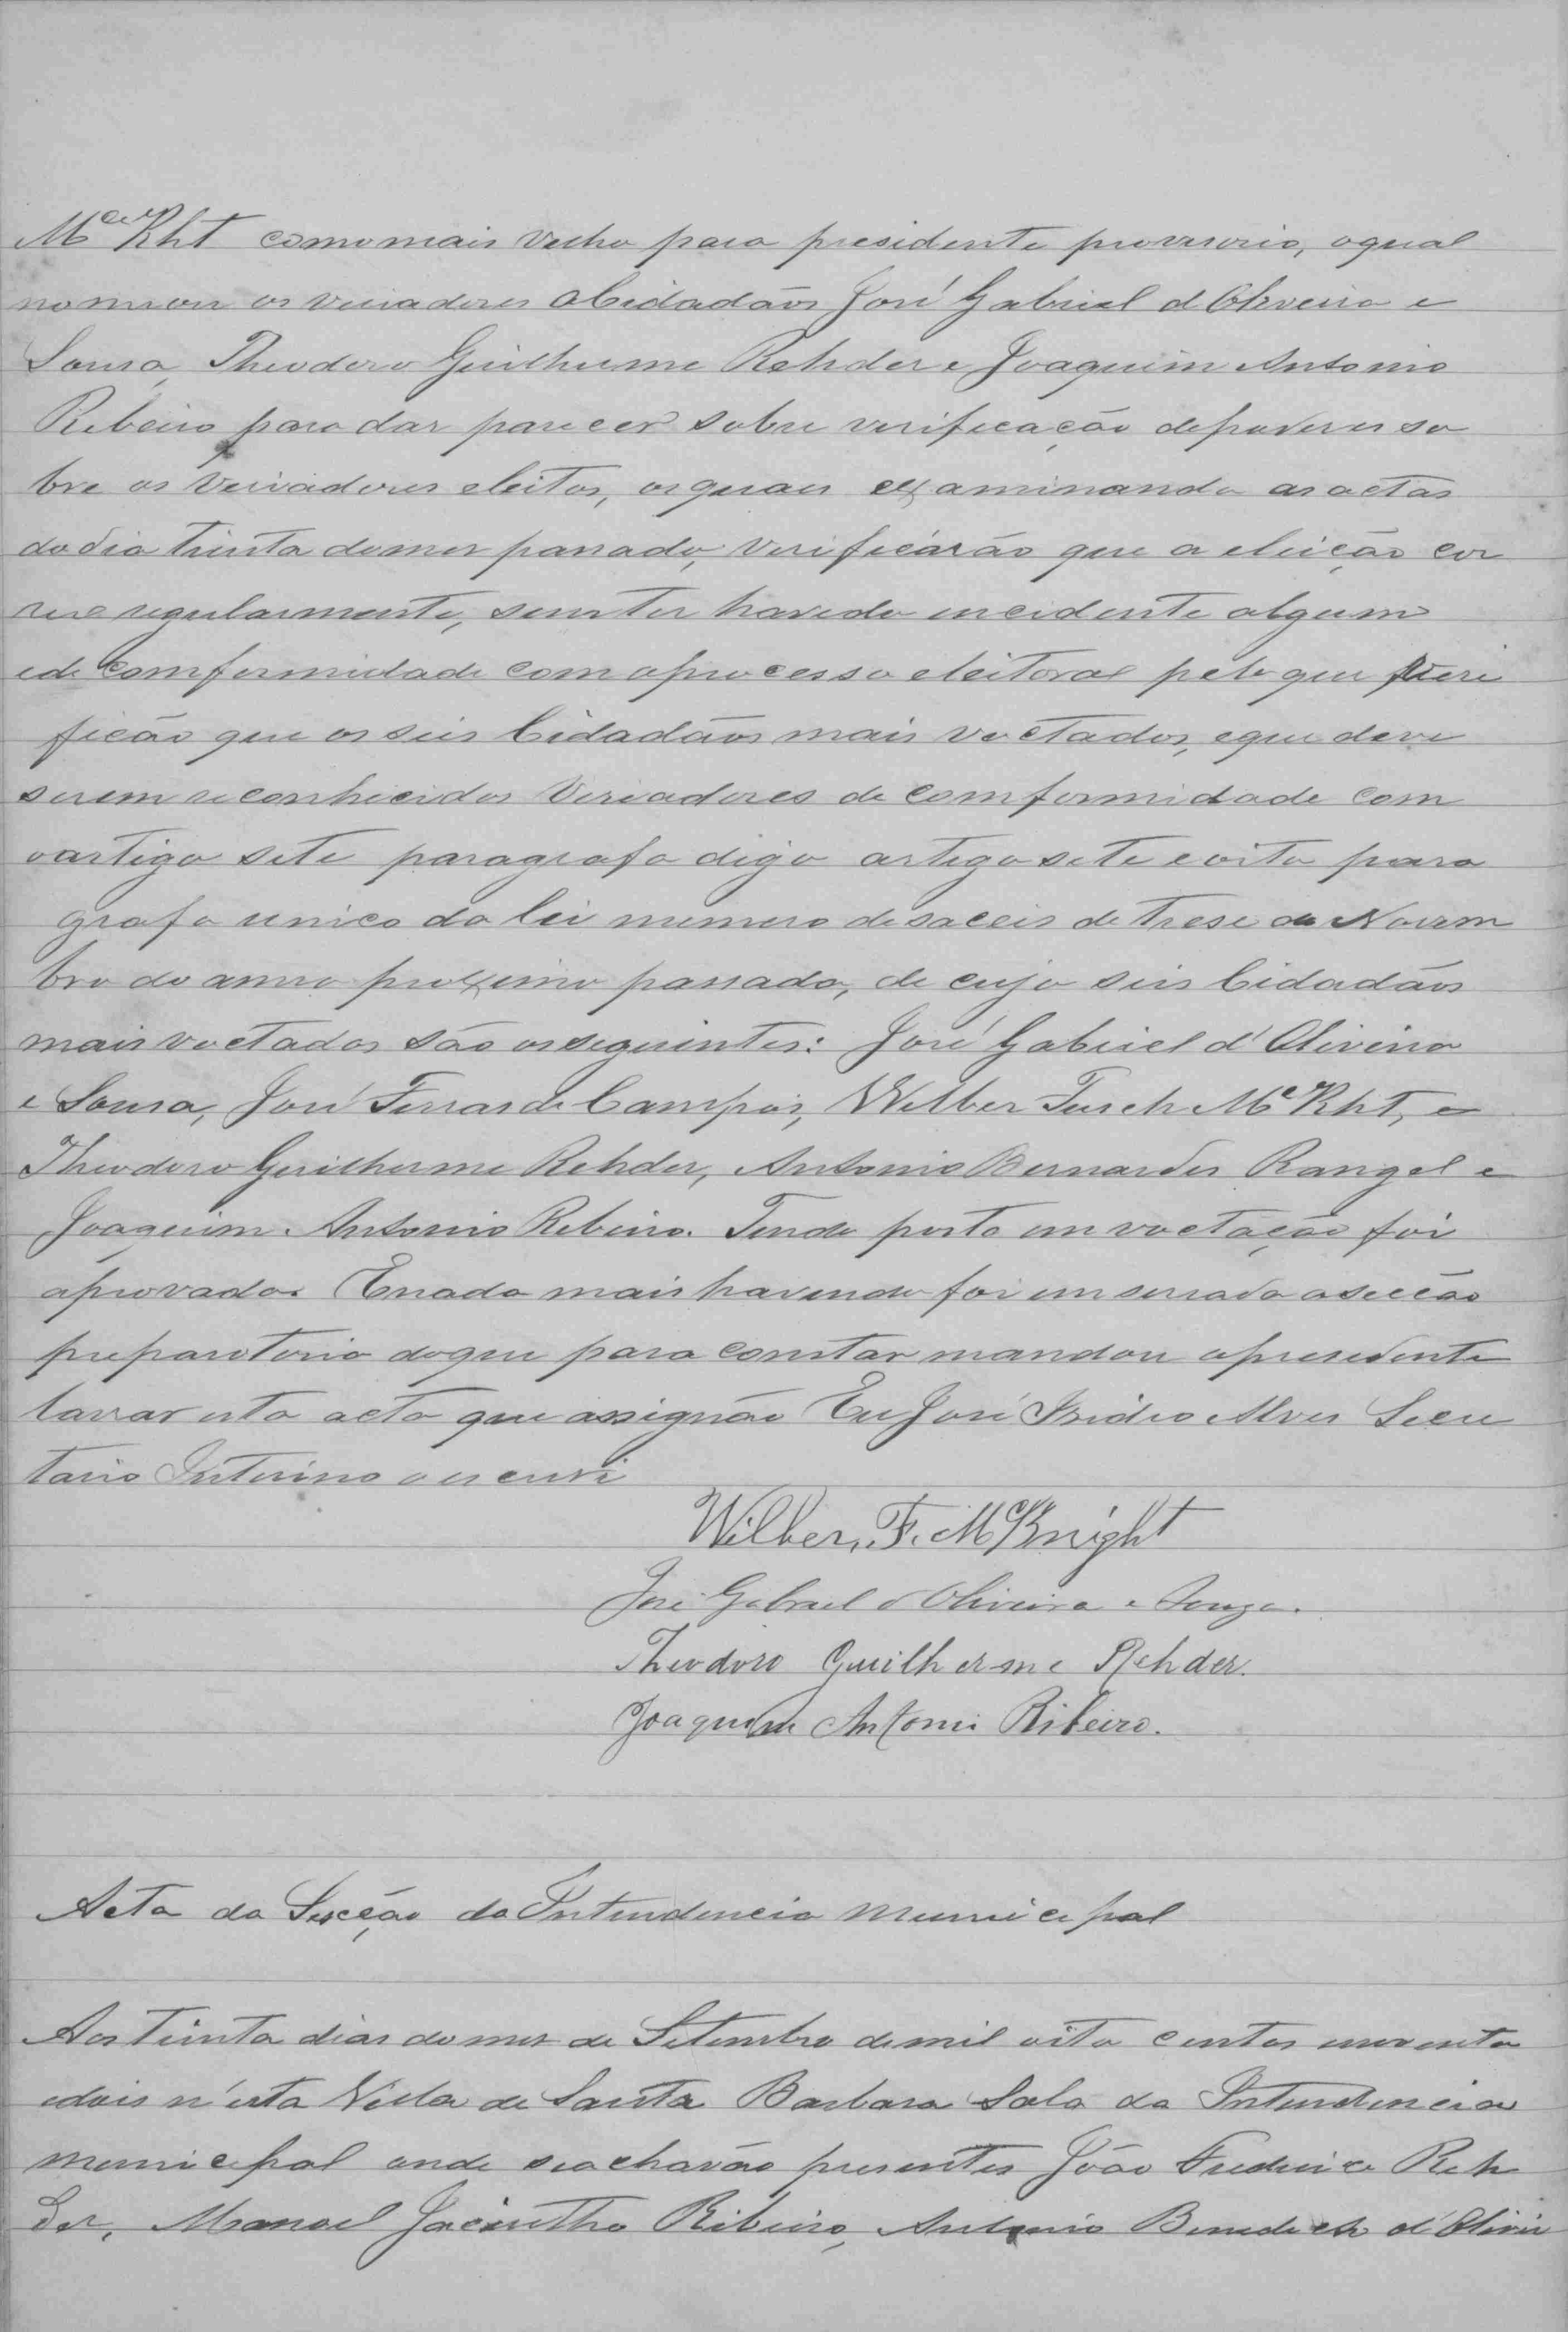 Mc Kht como mais velho para presidente provisorio, oqual
nomeou os veriadores Cidadãos José Gabriel d'Oliveira e
Sousa, Theodoro Guilherme Rehder e Joaquim Antonio
Ribeiro para dar parecer sobre verificação de poderes so
bre os Veriadores eleitos, os quaes examinando as actas
do dia trinta do mes passado, verificárão que a eleição cor
reu regularmente, sem ter havido incidente algum
e de comformidade com o processo eleitoral pelo que veri
ficão que os seis Cidadãos mais voctados, e que deve
serem reconhecidos Veriadores de comformidade com
o artigo sete paragrafo digo artigo sete e oito para
grafo unico da lei numero desaceis de trese de Novem
bro do anno proximo passado, de cujo seis Cidadãos
mais voctados são os seguintes: José Gabriel d'Oliveira
e Sousa, José Ferras de Campos, Wilber Fusch Mc Kht, e
Theodoro Guilherme Rehder, Antonio Bernardes Rangel e
Joaquim Antonio Ribeiro. Tendo posto em voctação foi
aprovado. E nada mais havendo foi emserrada a secção
preparatorio do que para constar mandou o presidente
lavrar esta acta que assignão Eu José Isidro Alves Secre
tario Interino o escrevi
Wilber. F. McKnight
José Gabriel d'Oliveira e Souza.
Theodoro Guilherme Rehder.
Joaquim Antonio Ribeiro.
Acta da Secção da Intendencia Municipal
Aos trinta dias do mes de Setembro de mil oito centos noventa
e dois n'esta Villa de Santa Barbara Sala da Intendencia
municipal onde se achavão presentes João Frederico Reh
der, Manoel Jacintho Ribeiro, Antonio Benedicto d'Olivei